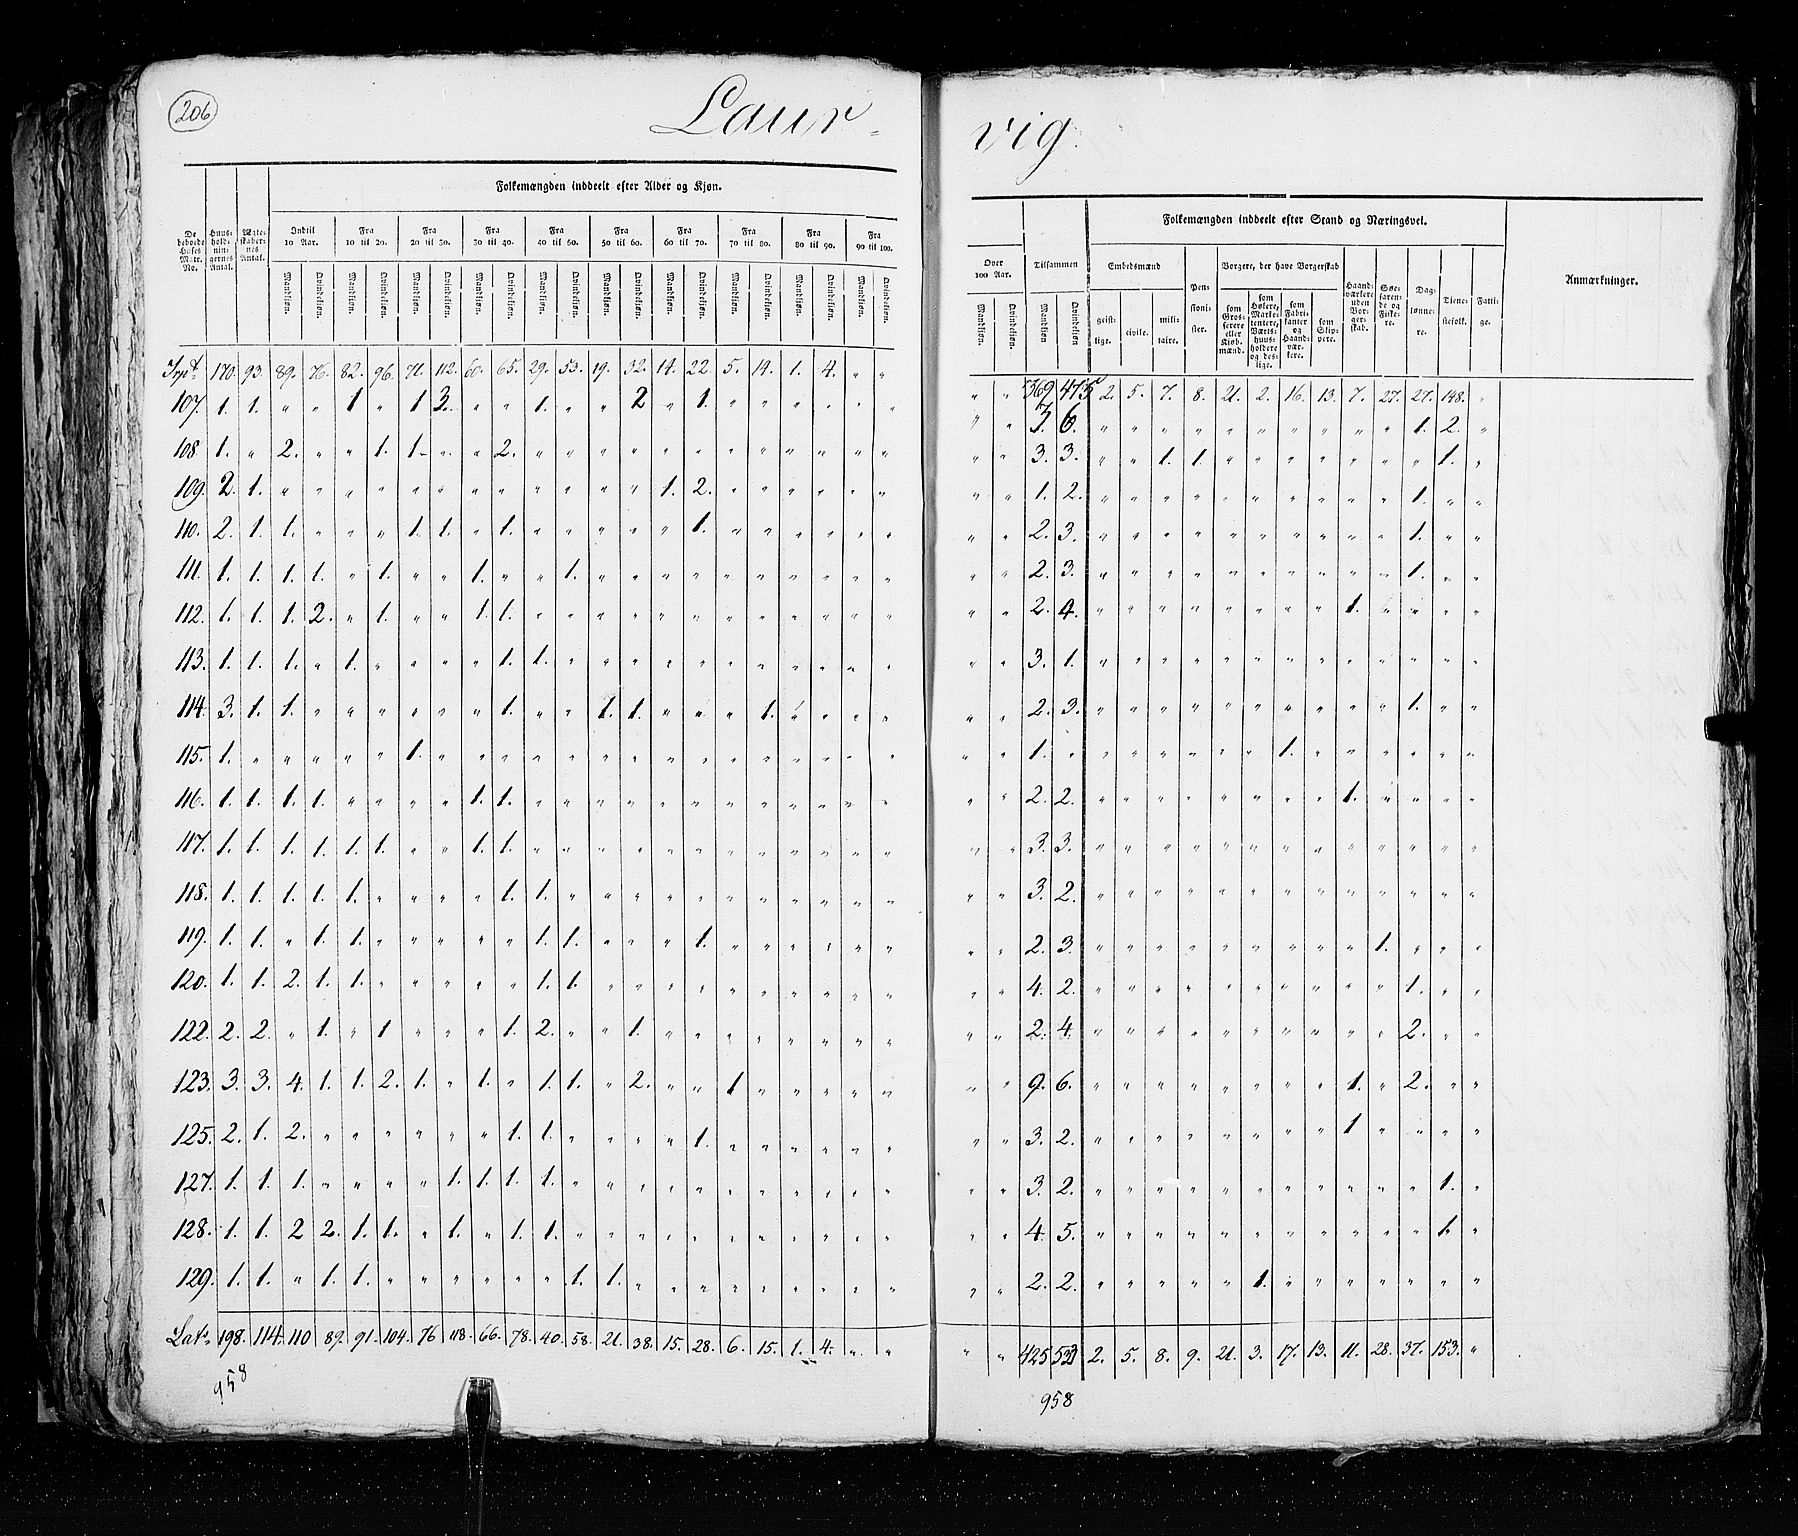 206
Laur=
vig.
Folkemængden inddeelt efter Alder og Kjøn.
De beboede Huses Matr. No. | Huus-hold-nin-gernes Antal. | Ægte-skaber-nes Antal. | Indtil 10 Aar. | Fra 10 til 20. | Fra 20 til 30. | Fra 30 til 40. | Fra 40 til 50. | Fra 50 til 60. | Fra 60 til 70. | Fra 70 til 80. | Fra 80 til 90. | Fra 90 til 100.
Mandkjøn. Qvindekjøn. Mandkjøn. Qvindekjøn. Mandkjøn. Qvindekjøn. Mandkjøn. Qvindekjøn. Mandkjøn. Qvindekjøn. Mandkjøn. Qvindekjøn. Mandkjøn. Qvindekjøn. Mandkjøn. Qvindekjøn. Mandkjøn. Qvindekjøn. Mandkjøn. Qvindekjøn.
170. 93. 89. 76. 82. 96. 71. 112. 60. 65. 29. 53. 19. 32. 14. 22. 5. 14. 1. 4. " "
107. 1. 1. " " 1 " 1 3. " " 1. " " 2 " 1. " " " " " "
108. 1. " 2. " " 1. 1. " " 2. " " " " " " " " " " " "
109. 2. 1. " " " " " " " " " " " " 1. 2. " " " " " "
110. 2. 1. 1. " " " 1. 1. " 1. " " " " " 1. " " " " " "
111. 1. 1. 1. 1. " 1. " " 1. " " 1. " " " " " " " " " "
112. 1. 1. 1. 2. " 1. " " 1. 1. " " " " " " " " " " " "
113. 1. 1. 1. " 1. " " " " 1. 1. " " " " " " " " " " "
114. 3. 1. 1. " " " " " " 1. " " 1. 1. " " " 1. " " " "
115. 1. " " " " " 1. " " " " " " " " " " " " " " "
116. 1. 1. 1. 1. " " " " 1. 1. " " " " " " " " " " " "
117. 1. 1. 1. 1. 1. 1. " " 1. 1. " " " " " " " " " " " "
118. 1. 1. 1. 1. 1. " " " " 1. 1. " " " " " " " " " " "
119. 1. 1. " 1. 1. " " " " " 1. 1. " " " 1. " " " " " "
120. 1. 1. 2. 1. 1. " " " " " 1. 1. " " " " " " " " " "
122. 2. 2. " 1. " 1 " " " 1. 2. " " 1. " " " " " " " "
123. 3. 3. 4. 1. 1. 2. 1. " 1. " 1. 1. " 2. " " 1 " " " " "
125. 2. 1. 2. " " " " " " 1. 1. " " " " 1. " " " " " "
127. 1. 1. 1. " " " " 1. 1. 1. 1. " " " " " " " " " " "
128. 1. 1. 2 2. 1. 1. " 1. " 1. 1. " " " " " " " " " " "
129. 1. 1. " 1. 1. " " " " " " 1. 1. " " " " " " " " "
Lats. 198. 114. 110 89. 91. 104. 76 118. 66. 78. 40. 58. 21. 38. 15. 28. 6. 15. 1. 4. " "
958
Over 100 Aar. | Tilsammen | Folkemængden inddeelt efter Stand og Næringsvei. | Anmærkninger.
Embedsmænd | Pen-sioni-ster. | Borgere, der have Borgerskab | Haand-værkere uden Bor-ger-skab. | Søe-faren-de og Fiske-re. | Dag-lønne-re. | Tiene-stefolk. | Fatti-ge.
Mandkjøn. Qvindekjøn. Mandkjøn Qvindekjøn geist-lige. civile. mili-taire. som Gros-serere eller Kjøb-mænd. som Høkere, Marke-tentere, Værts-huus-holdere og des-lige. som Fabri-kanter og Haand-vær-kere. som Skip-pere.
" " 369 475 2. 5. 7. 8. 21. 2. 16. 13. 7. 27. 27. 148. "
" " 3. 6. " " " " " " " " " " 1. 2. "
" " 3. 3. " " 1. 1. " " " " " " " 1. "
" " 1. 2. " " " " " " " " " " 1. " "
" " 2. 3. " " " " " " " " " " 1. " "
" " 2. 3. " " " " " " " " " " 1. " "
" " 2. 4. " " " " " " " " 1. " " " "
" " 3. 1. " " " " " " " " " " " " "
" " 2. 3. " " " " " " " " " " 1. " "
" " 1. " " " " " " " 1. " " " " " "
" " 2. 2. " " " " " " " " 1. " " " "
" " 3. 3. " " " " " " " " " " " " "
" " 3. 2. " " " " " " " " " " " " "
" " 2. 3. " " " " " " " " " 1. " " "
" " 4. 2. " " " " " " " " " " 1. " "
" " 2. 4. " " " " " " " " " " 2. " "
" " 9. 6. " " " " " " " " 1. " 2. " "
" " 3. 2. " " " " " " " " 1 " " " "
" " 3. 2. " " " " " " " " " " " 1. "
" " 4. 5. " " " " " " " " " " " 1. "
" " 2. 2. " " " " " 1. " " " " " " "
" " 425 533 2. 5. 8. 9. 21. 3. 17. 13. 11. 28. 37. 153. "
958